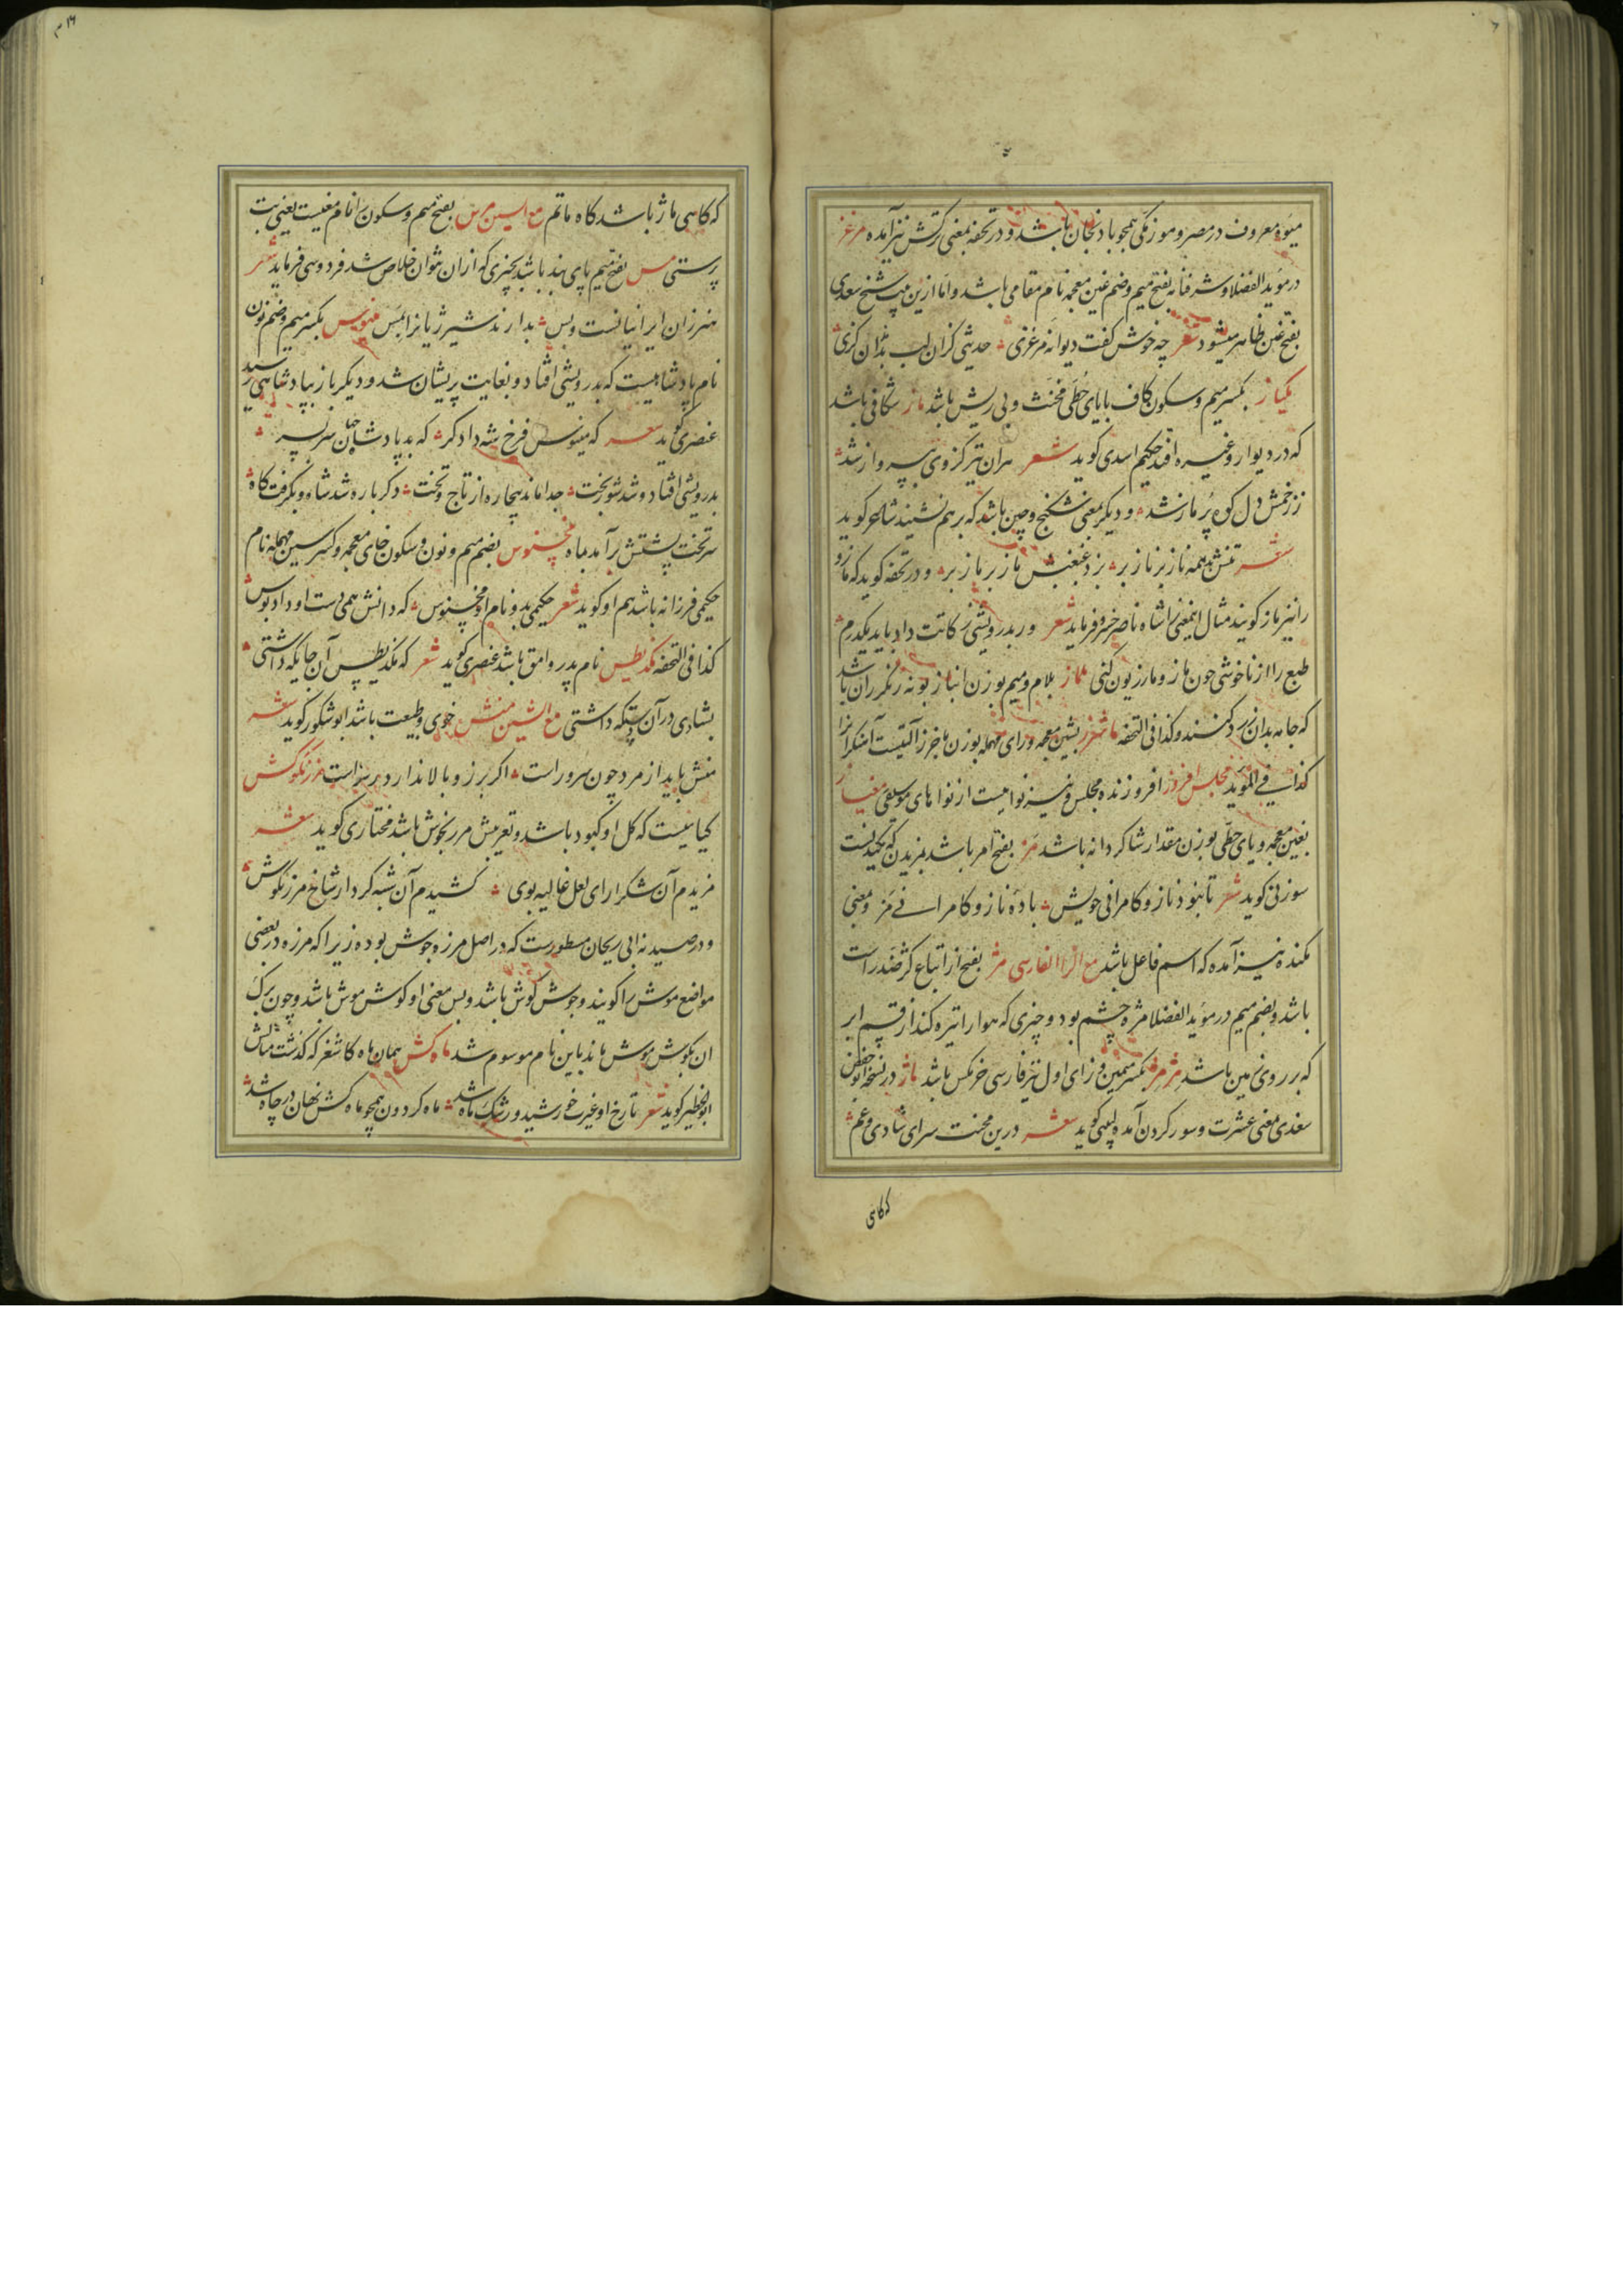 میوه معروف در مصر و موزنکی همچو بادنجان باشد و در تحفه بمعنی ترکش نیز آمده مرغز
در مؤید الفضلا و شرفنامه بفتح میم و ضم غین معجمه نام مقامی باشد و اما ازین بیت شیخ سعدی
بفتح غین ظاهر میشود شعر چه خوش کفت دیوانه مرغزی حدیثی کزان لب بدندان کزی
مکیاز بکسر میم و سکون کاف با یای حطی مخنث و بی ریش باشد ماز شکافی باشد
که در دیوار و غیره افتد حکیم اسدی کوید شعر هران تیر کز وی بپرواز شد
ز زخمش دل کوه پر ماز شد و دیکر بمعنی شکنج و چین باشد که بر هم نشیند شاعر کوید
شعر تنش بد همه ناز بر ناز بر بزد غبغبش ماز بر ماز بر و در تحفه کوید که مازو
را نیز ماز کویند مثال اینمعنی را شاه ناصر خسرو فرماید شعر ور بدرویشی زکاتت داد باید یکدرم
طبع را از ناخوشی چون ماز و مازریون کنی لماز بلام و میم بوزن انباز بوته رنکرزان باشد
که جامه بدان زرد کنند و کذا فی التحفه ماشرز بشین معجمه و رای مهمله بوزن هاجرز آلتیست آهنکرانرا
کذا فی المؤید مجلس افروز افروزنده مجلس و نیز نواییست از نواهای موسیقی مغیاز
بغین معجمه و یای حطی بوزن مقدار شاکردانه باشد مز بفتح امر باشد بمزیدن که مکیدنست
سوزنی کوید شعر تا بنود ناز و کامرانی خویش باده ناز و کامرانی مز و معنی
مکنده نیز آمده که اسم فاعل باشد مع الزا الفارسی مژ بفتح از اتباع کژ ضد راست
باشد و بضم میم در مؤید الفضلا مژه چشم بود و چیزی که هوا را تیره کند از قسم ابر
که بر روی زمین باشد مژمژ بکسر میمین و زای اول نیز فارسی خرمکس باشد ماژ در نسخه ابوحفض
سغدی معنی عشرت و سور کردن آمده لبیبی کوید شعر درین محنت سرای شادی و غم
که کاهی
که کاهی ماژ باشد کاه ماتم مع السین مرس بفتح میم و سکون را نام مغیست یعنی بت
پرستی مس بفتح میم پای بند باشد بچیزی که از ان نتوان خلاص شد فردوسی فرماید شعر
هنر زان ایرانیانست و بس بدارند شیر ژیانرا بمس منوس بکسر میم و ضم نون
نام پادشاهیست که بدرویشی افتاد و بغایت پریشان شد و دیکر باز بپادشاهی رسید
عنصری کوید شعر که منوس فرخ شه دادکر که بد پادشاه جهان سربسر
بدرویشی افتاد و شد شوربخت جدا ماند بیچاره از تاج و تخت دکر باره شد شاه و بکرفت کاه
سر تخت پشتش برآمد بماه منخسنوس بضم میم و نون و سکون خای معجمه و کسر سین مهمله نام
حکیمی فرزانه باشد هم او کوید شعر حکیمی بد و نام او منخسنوس که دانش همی دست او داد بوس
کذا فی التحفه مکذیطس نام پدر وامق باشد عنصری کوید شعر که مکذیطس آن جایکه داشتی
بشادی در آن دستکه داشتی مع الشین منش خوی و طبیعت باشد ابوشکور کوید شعر
منش باید از مرد چون سرو راست اکر برز و بالا ندارد رواست مرزنکوش
کیاهیست که کل او کبود باشد و تعریش مرزنجوش باشد مختاری کوید شعر
مزیدم آن شکرآرای لعل غالیه بوی کشیدم آن شبه کردار شاخ مرزنکوش
و در صیدنه ابی ریحان مسطورست که در اصل مرزه جوش بوده زیرا که مرزه در بعضی
مواضع موش را کویند و جوش کوش باشد و بس معنی او کوش موش باشد و چون برک
ان بکوش موش ماند باین نام موسوم شد ماه کش همان ماه کاشغر که کذشت مثالش
ابوالخطیر کوید شعر تا رخ او غیرت خورشید و رشک ماه شد ماه کردون همچو ماه کش نهان در چاه شد